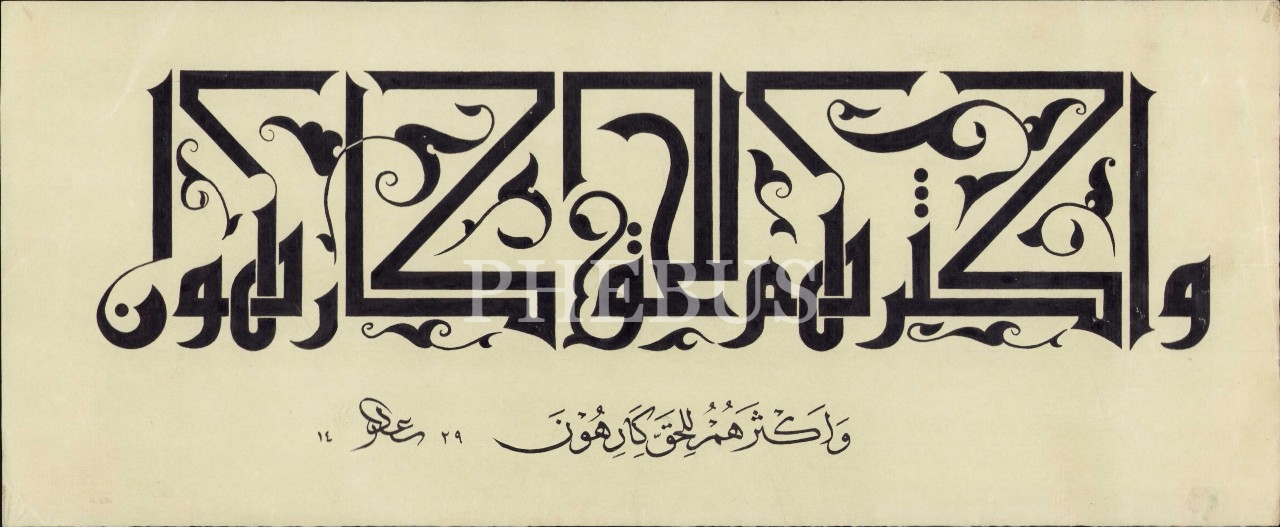 واكثرهم للحق كارهون
PHEBUS
وَاَكْثَرَهُمْ لِلحَقَّ كَارِهُونَ ٢٩ ١٤